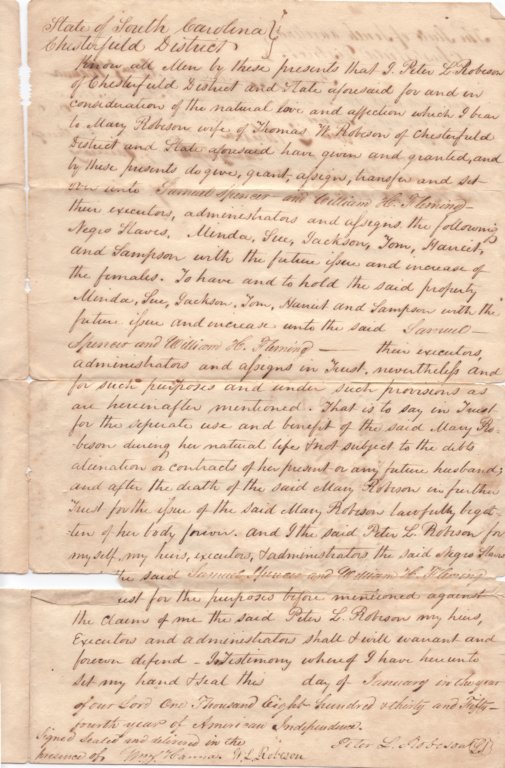 State of South Carolina }
Chesterfield District }
Know all Men by these presents that I, Peter L. Robeson
of Chesterfield District and State aforesaid for and in
consideration of the natural love and affection which I bear
to Mary Robeson wife of Thomas W. Robeson of Chesterfield
District and State aforesaid have given and granted, and
by these presents do give, grant, assign, transfer and set
over unto Samuel Spencer and William H. Fleming
their executors, administrators and assigns the following
Negro Slaves. Minda, Sue, Jackson, Tom, Harriet,
and Sampson with the future issue and increase of
the females. To have and to hold the said property
Minda, Sue, Jackson, Tom, Harriet and Sampson with the
future issue and increase unto the said Samuel
Spencer and William H. Fleming — their executors,
administrators and assigns in Trust, nevertheless and
for such purposes and under such provisions as
are hereinafter mentioned. That is to say in Trust
for the seperate use and benefit of the said Mary Ro-
beson during her natural life & not subject to the debts
alienation or contracts of her present or any future husband;
and after the death of the said Mary Robeson in further
Trust for the issue of the said Mary Robeson lawfully begot-
ten of her body forever. and I the said Peter L. Robeson for
myself, my heirs, executors, & administrators the said Negro Slaves
the said Samuel Spencer and William H. Fleming
ust for the purposes before mentioned against
the claim of me the said Peter L. Robeson my heirs,
Executors and administrators shall & will warrant and
forever defend - In Testimony whereof I have hereunto
set my hand & seal this day of January in the year
of our Lord One Thousand Eight hundred & thirty and Fifty-
fourth year of American Independence.
Signed Sealed and delivered in the Peter L. Robeson
presence of Hanna W. L. Robeson